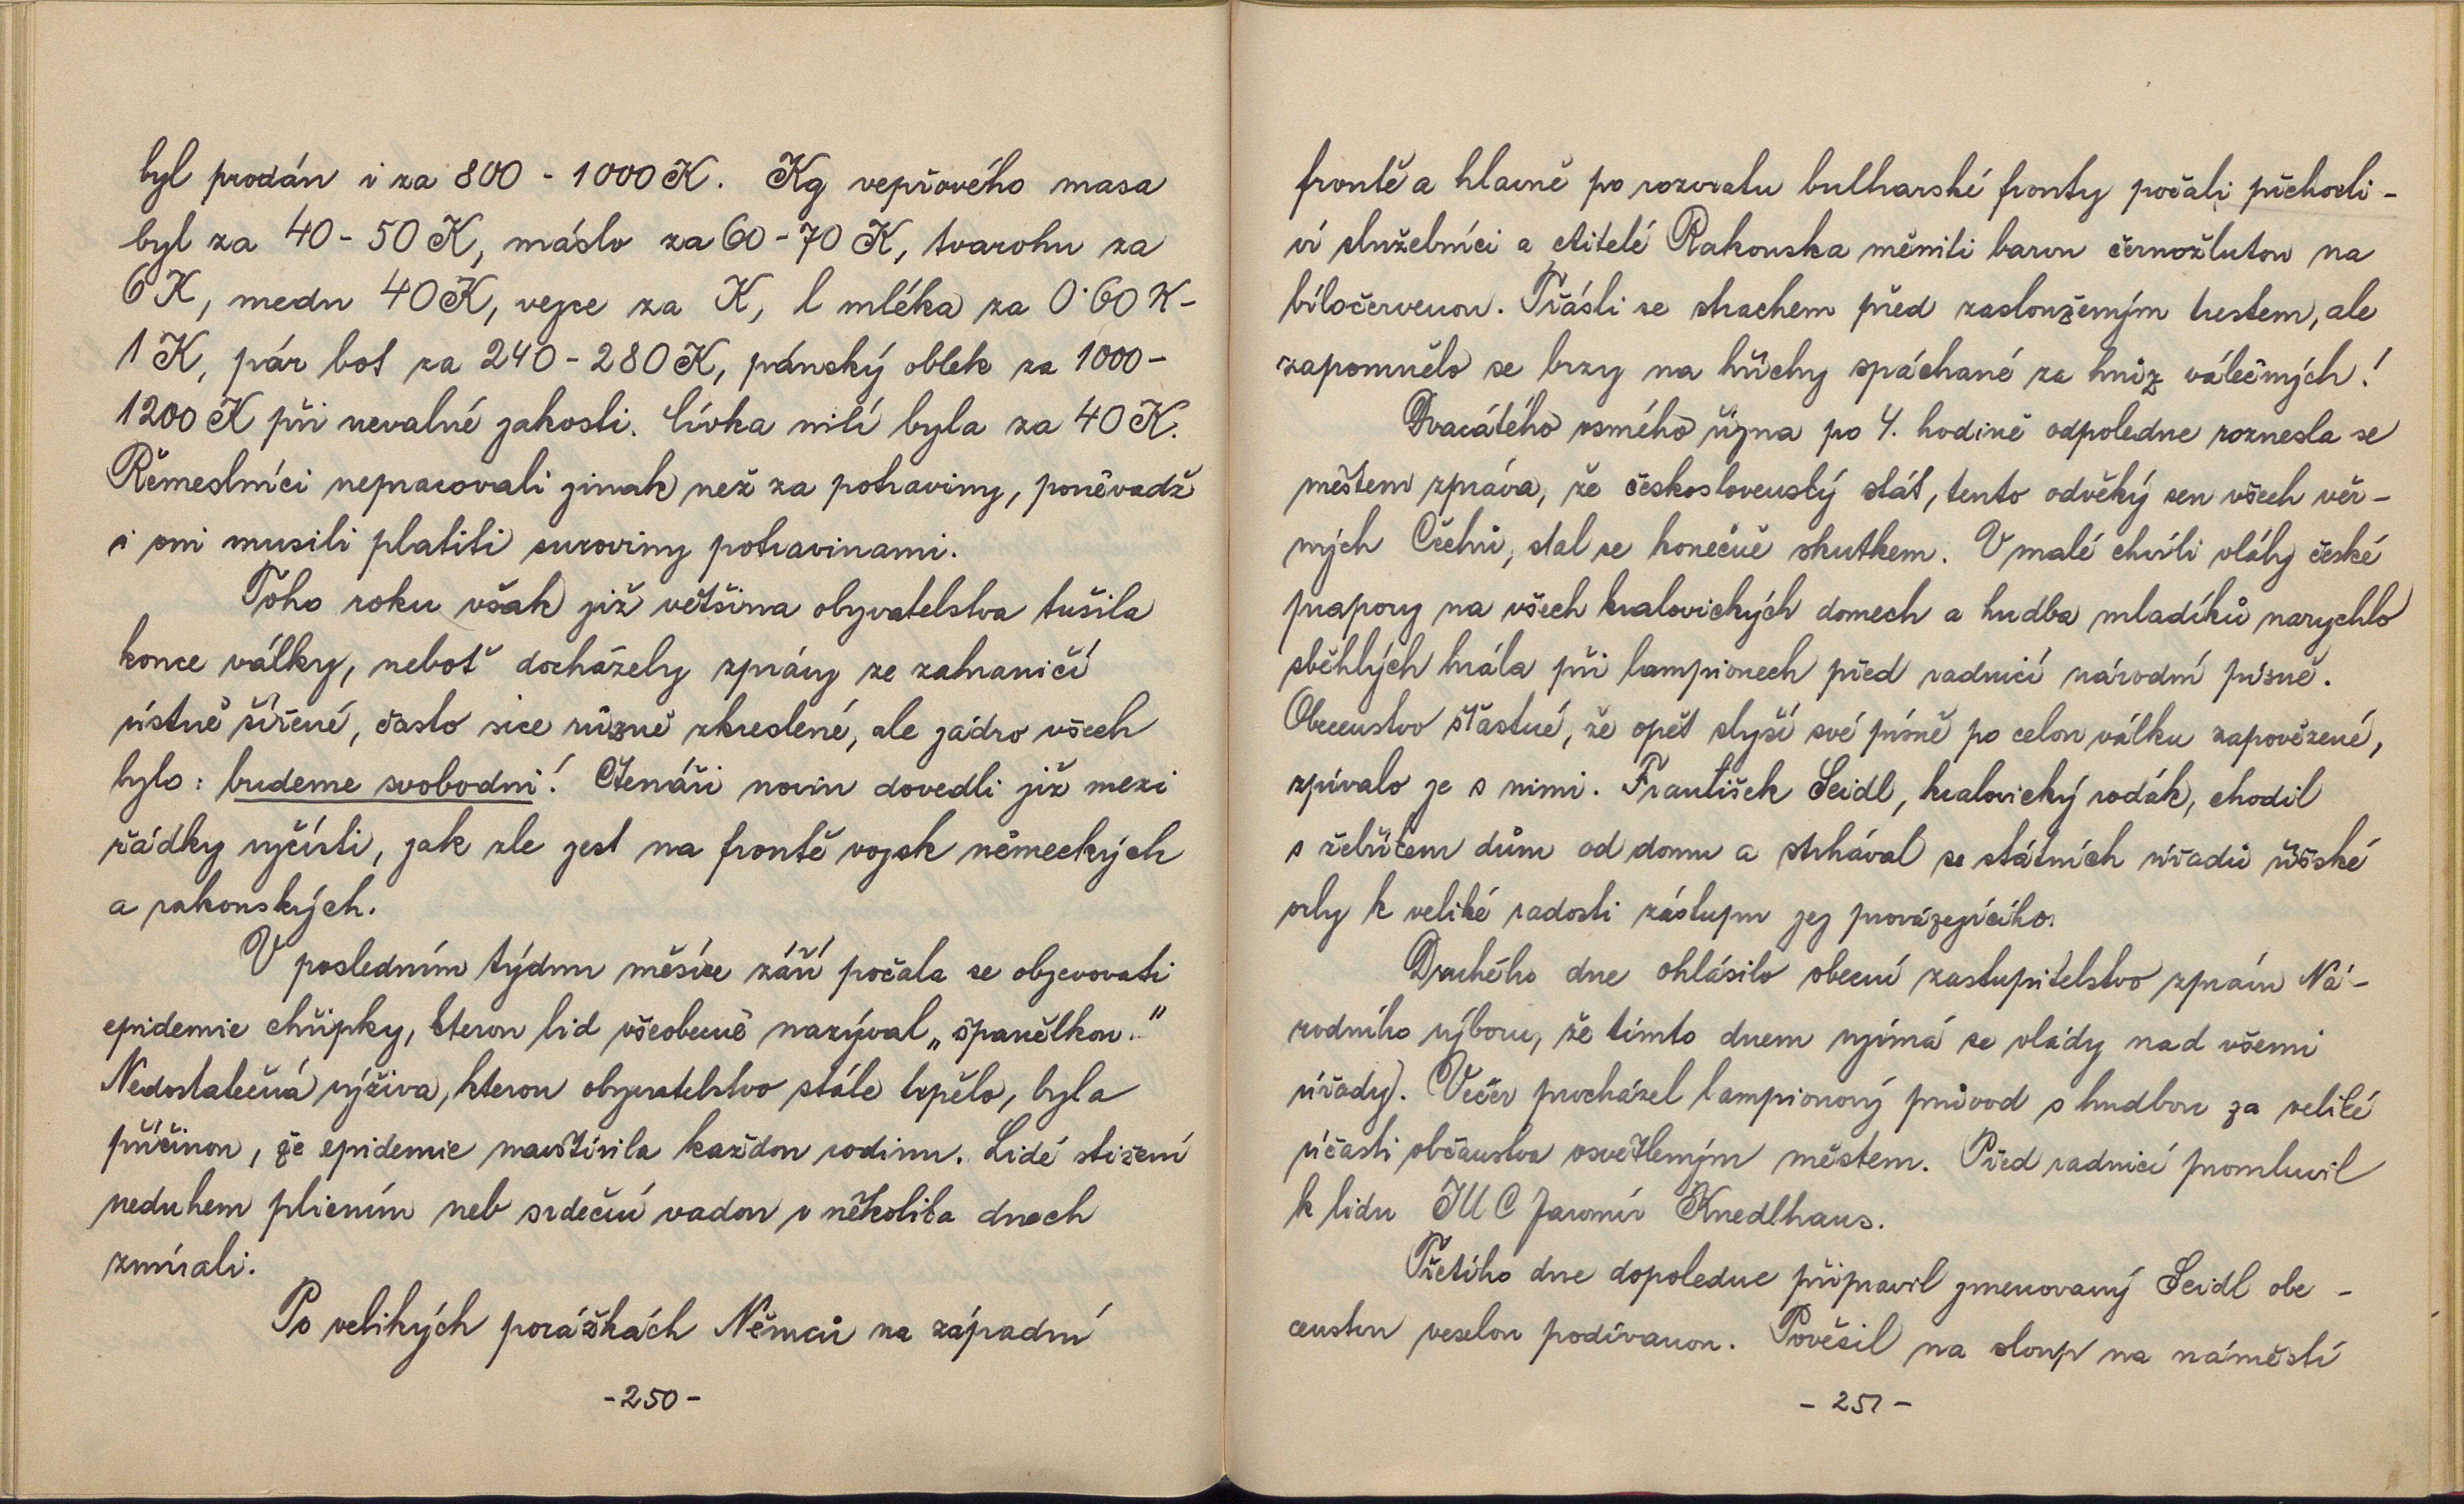 byl prodán i za 800 - 1000 K. Kg vepřového masa
byl za 40 - 50 K, máslo za 60 - 70 K, tvarohu za
6 K, medu 40 K, vejce za K, l mléka za 0·60 K -
1 K, pár bot za 240 - 280 K, pánský oblek za 1000 -
1200 K při nevalné jakosti. Cívka nití byla za 40 K.
Řemeslníci nepracovali jinak než za potraviny, poněvadž
i oni musili platiti suroviny potravinami.
Toho roku však již většina obyvatelstva tušila
konec války, neboť docházely zprávy ze zahraničí
ústně šířené, často sice různě zkreslené, ale jádro všech
bylo: budeme svobodni! Čtenáři novin dovedli již mezi
řádky vyčísti, jak zle jest na frontě vojsk německých
a rakouských.
V posledním týdnu měsíce září počala se objevovati
epidemie chřipky, kterou lid všeobecně nazýval „španělkou."
Nedostatečná výživa, kterou obyvatelstvo stále trpělo, byla
příčinou, že epidemie navštívila každou rodinu. Lidé stižení
neduhem plicním neb srdeční vadou v několika dnech
zmírali.
Po velikých porážkách Němců na západní
- 250 -
frontě a hlavně po rozvratu bulharské fronty počali příchodi-
ví služebníci a ctitelé Rakouska měniti barvu černožlutou na
bíločervenou. Třásli se strachem před zaslouženým trestem, ale
zapomnělo se brzy na hříchy spáchané za hrůz válečných!
Dvacátého osmého října po 4. hodině odpoledne roznesla se
městem zpráva, že československý stát, tento odvěký sen všech věr-
ných Čechů, stal se konečně skutkem. V malé chvíli vlály české
prapory na všech kralovických domech a hudba mladíků narychlo
sběhlých hrála při lampionech před radnicí národní písně.
Obecenstvo šťastné, že opět slyší své písně po celou válku zapovězené,
zpívalo je s nimi. František Seidl, kralovický rodák, chodil
s žebříkem dům od domu a strhával se státních úřadů říšské
orly k veliké radosti zástupu jej provázejícího.
Druhého dne ohlásilo obecní zastupitelstvo zprávu Ná-
rodního výboru, že tímto dnem ujímá se vlády nad všemi
úřady. Večer procházel lampionový průvod s hudbou za veliké
účasti občanstva osvětleným městem. Před radnicí promluvil
k lidu JUC Jaromír Knedlhans.
Třetího dne dopoledne připravil jmenovaný Seidl obe-
censtvu veselou podívanou. Pověsil na sloup na náměstí
- 251 -